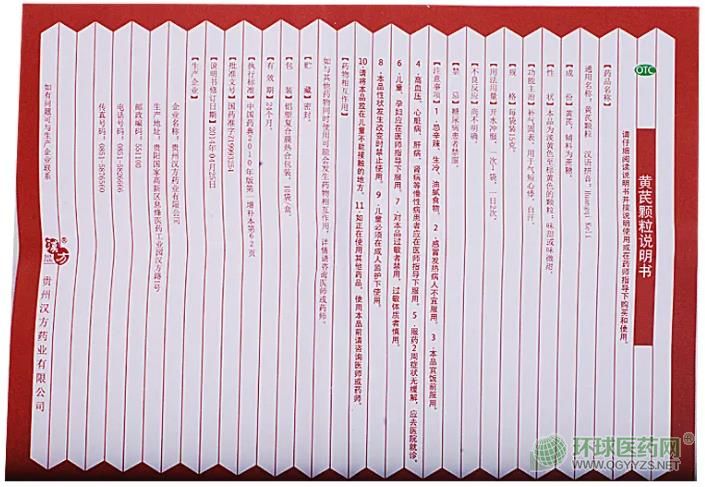 OTC
黄芪颗粒说明书
请仔细阅读说明书并按说明使用或在药师指导下购买和使用。
【药品名称】
通用名称：黄芪颗粒 汉语拼音：Huangqi Keli
【成 份】黄芪，辅料为蔗糖。
【性 状】本品为淡黄色至棕黄色的颗粒；味甜或味微甜。
【功能主治】补气固表。用于气短心悸，自汗。
【规 格】每袋装15克。
【用法用量】开水冲服。一次1袋，一日2次。
【不良反应】尚不明确。
【禁 忌】糖尿病患者禁服。
【注意事项】1．忌辛辣、生冷、油腻食物。 2．感冒发热病人不宜服用。 3．本品宜饭前服用。
4．高血压、心脏病、肝病、肾病等慢性病患者应在医师指导下服用。 5．服药2周症状无缓解，应去医院就诊。
6．儿童、孕妇应在医师指导下服用。 7．对本品过敏者禁用，过敏体质者慎用。
8．本品性状发生改变时禁止使用。 9．儿童必须在成人监护下使用。
10．请将本品放在儿童不能接触的地方。 11．如正在使用其他药品，使用本品前请咨询医师或药师。
【药物相互作用】
如与其他药物同时使用可能会发生药物相互作用，详情请咨询医师或药师。
【贮 藏】密封。
【包 装】铝塑复合膜热合包装，10袋/盒。
【有 效 期】24个月。
【执行标准】中国药典2010年版第一增补本第62页
【批准文号】国药准字Z19993254
【说明书修订日期】2014年04月25日
【生产企业】
企业名称：贵州汉方药业有限公司
生产地址：贵阳国家高新区乌当医药工业园汉方路1号
邮政编码：551100
电话号码：0851-6826606
传真号码：0851-6876560
如有问题可与生产企业联系
汉方®
贵州汉方药业有限公司
环球医药网
WWW.QGYYZS.NET